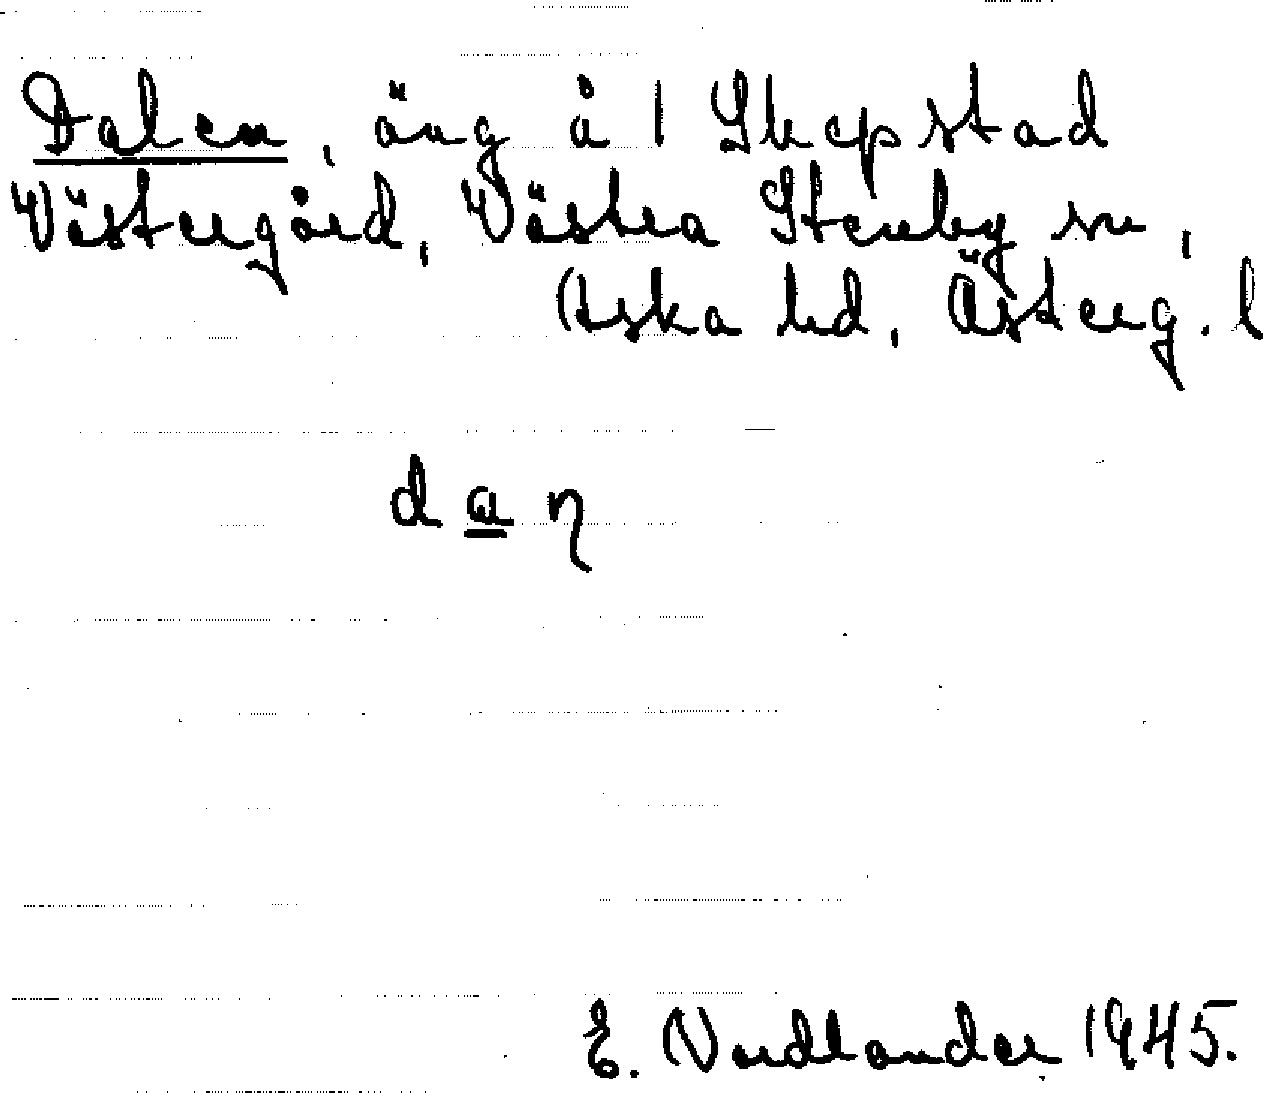 Dalen, äng å 1 Skepstad
Västergård, Västra Stenby sn,
Aska hd, Österg. l
daη
E. Nordlander 1945.